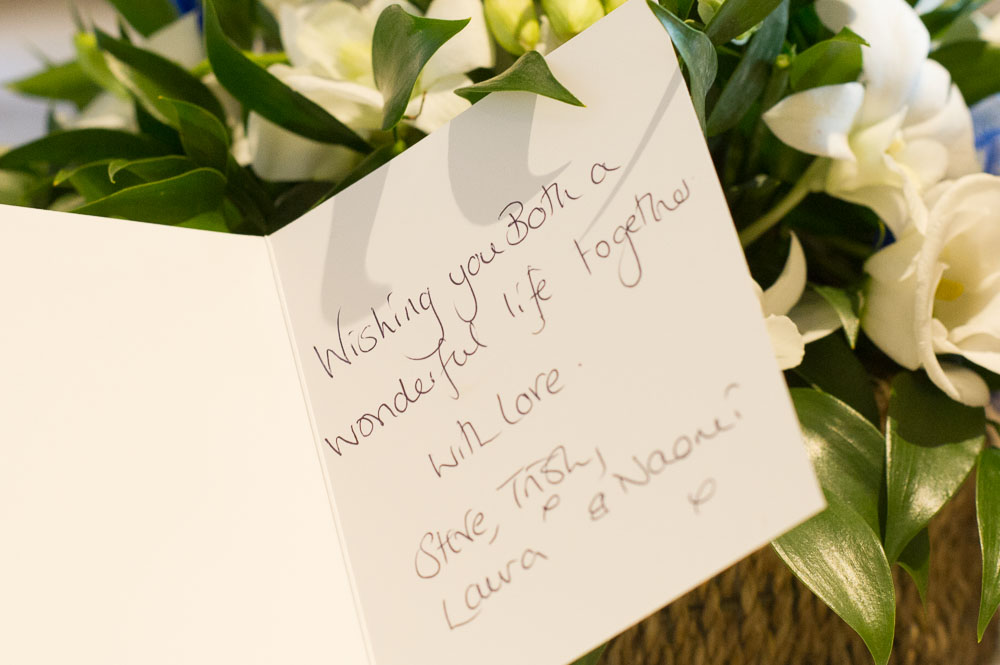 Wishing you Both a
wonderful life together
with Love.
Steve, Trish,
Laura & Naomi